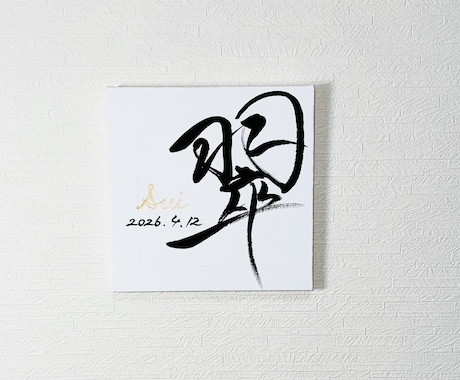 翠
Sui
2026.4.12